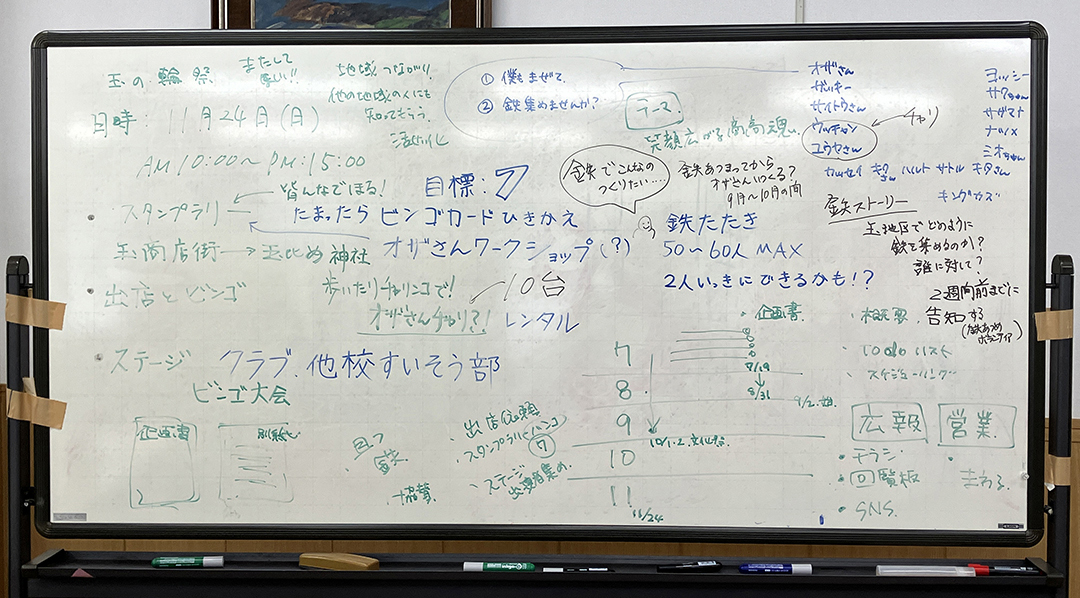 玉の輪祭
またして
地域つながり!
他の地域の人にも
知ってもらう
活性化
日時:11月24日(日)
AM10:00〜PM:15:00
① 僕もまぜて。
② 鉄集めませんか?
ブース
笑顔広がる商高魂
オザさん
ザッキー
サイトウさん
ウッチャン
ユウヤさん
チャリ
ヨッシー
サクちゃん
ナツメ
ミオちゃん
カッセイ
ハルト サトル キタさん
キングカズ
目標:7
金失でこんなの
つくりたい…
金失あつまってから
オザさんいつくる?
9月〜10月の間
皆んなでほる!
スタンプラリー
たまったらビンゴカードひきかえ
玉商店街→玉比め神社
オザさんワークショップ(?)
鉄たたき
50〜60人 MAX
2人いっきにできるかも!?
金失ストーリー
玉地区でどのように
鉄を集めるのか?
誰に対して?
2週間前までに
告知する
出店とビンゴ
歩いたりチャリンコで!
オザさんチャリ?!
10台
レンタル
ステージ
クラブ、他校すいそう部
ビンゴ大会
・企画書
・概要
・Todoリスト
・スケジューリング
7
7/19
8/31
8
9
10/1.2.文化祭
10
11
11/24
企画書
協賛
・出店依頼
・スタンプラリーハンコ
⑦
・ステージ
出演者集め
広報
・チラシ
・回覧板
・SNS
営業
・まわる